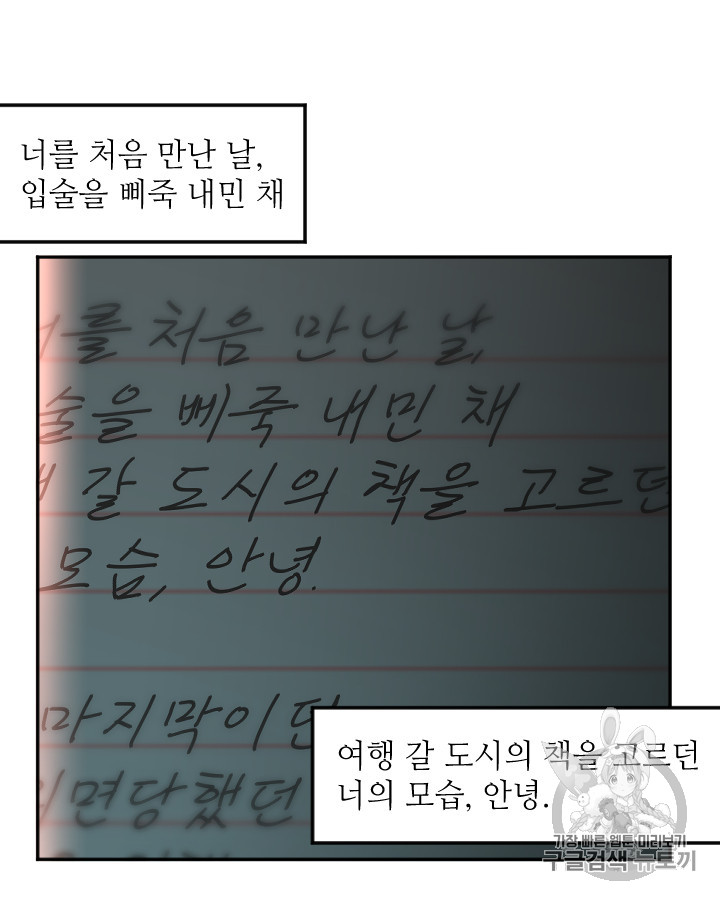 너를 처음 만난 날,
입술을 삐죽 내민 채
를 처음 만난 날,
술을 삐죽 내민 채
갈 도시의 책을 고르던
모습, 안녕.
마지막이던
면당했던
여행 갈 도시의 책을 고르던
너의 모습, 안녕.
가장 빠른 웹툰 미리보기
구글검색 뉴토끼